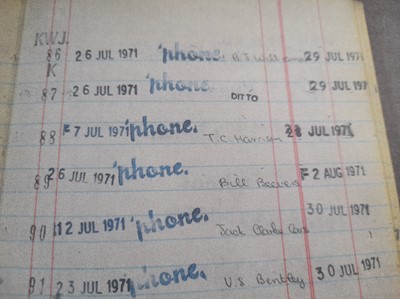 KWJ.
86 26 JUL 1971 'phone. 29 JUL 1971
K
87 26 JUL 1971 'phone. DITTO 29 JUL 197
88 7 JUL 1971 'phone. T.C Harrison 28 JUL 1971
89 26 JUL 1971 'phone. Bill 2 AUG 1971
90 12 JUL 1971 'phone. Jack Cars 30 JUL 1971
91 23 JUL 1971 'phone. U.S Bentley 30 JUL 1971